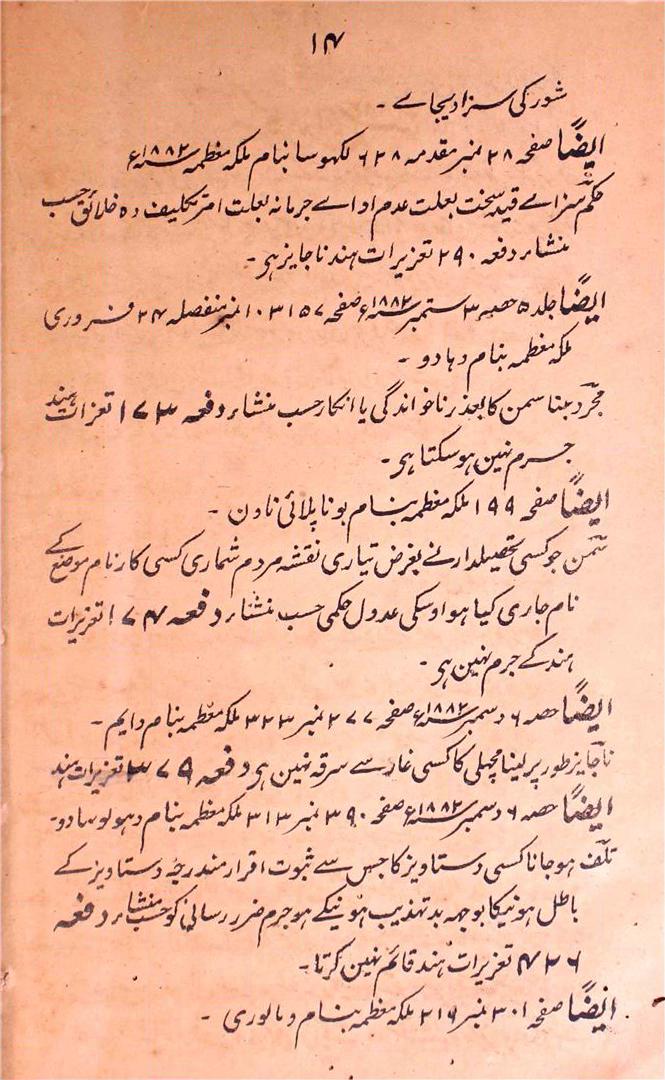 ۱۴
شور کی سزا دیجاے ۔
ایضًا صفحہ ۲۸ نمبر مقدمہ ۶۲۸ لکھوسا بنام ملکہ معظمہ سنہ ۱۸۸۲ء
حکم سزاے قید سخت بعلت عدم اداے جرمانہ بعلت امر تکلیف دہ خلائق حسب
منشاء دفعہ ۲۹۰ تعزیرات ہند ناجایز ہی ۔
ایضًا جلد ۵ حصہ ۳ ستمبر سنہ ۱۸۸۲ء صفحہ ۱۵۷ ۱۰۳ نمبر منفصلہ ۲۴ فروری
ملکہ معظمہ بنام دہادو ۔
مجرد بینا سمن کا بعذر ناخواندگی یا انکار حسب منشاء دفعہ ۱۷۳ تعزرات ہند
جرم نہین ہو سکتا ہی ۔
ایضًا صفحہ ۱۹۹ ملکہ معظمہ بنام بونا پلائی نادن ۔
سمن جو کسی تحصیلدار نے بغرض تیاری نقشہ مردم شماری کسی کار نام موضع کے
نام جاری کیا ہو اوسکی عدول حکمی حسب منشاء دفعہ ۱۷۴ تعزیرات
ہند کے جرم نہین ہی ۔
ایضًا حصہ ۶ دسمبر سنہ ۱۸۸۲ء صفحہ ۲۷۷ نمبر ۳۲۳ ملکہ معظمہ بنام دایم ۔
ناجایز طور پر لینا مچھلی کا کسی غار سے سرقہ نہین ہی دفعہ ۳۷۹ تعزیرات ہند
ایضًا حصہ ۶ دسمبر سنہ ۱۸۸۲ء صفحہ ۳۹۰ نمبر ۳۱۳ ملکہ معظمہ بنام
تلف ہو جانا کسی دستاویز کا جس سے ثبوت اقرار مندرجہ دستاویز کے
باطل ہونیکا بوجہ بد تہذیب ہونیکے ہو جرم ضرر رسانی کو حسب منشاء دفعہ
۴۲۶ تعزیرات ہند قائم نہین کرتا ۔
ایضًا صفحہ ۳۰۱ نمبر ۲۱۹ ملکہ معظمہ بنام ومالوری ۔